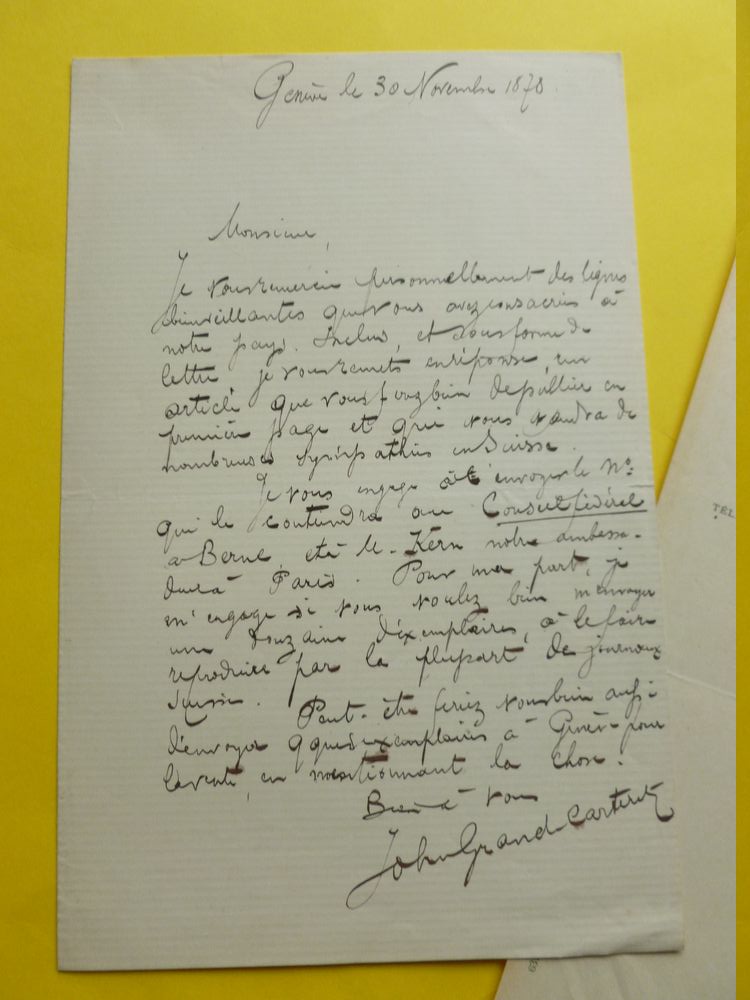 Genève le 30 Novembre 1878
Monsieur,
Je vous remercie personnellement des lignes
bienveillantes que vous avez consacrées à
notre pays. Inclus, et sous forme de
lettre je vous remets en réponse, un
article que vous ferez bien de publier en
première page et qui vous vaudra de
nombreuses sympathies en Suisse.
Je vous engage à l'envoyer le No
qui le contiendra au Conseil fédéral
à Berne et à Mr. Kern notre ambassa-
deur à Paris. Pour ma part, je
m'engage si vous voulez bien m'envoyer
une douzaine d'exemplaires, à le faire
reproduire par la plupart de journaux
suisse. Peut-être feriez vous bien aussi
d'envoyer qques exemplaires à Genève pour
la vente, en mentionnant la chose.
Bien à vous
John Grand-Carteret
TEL